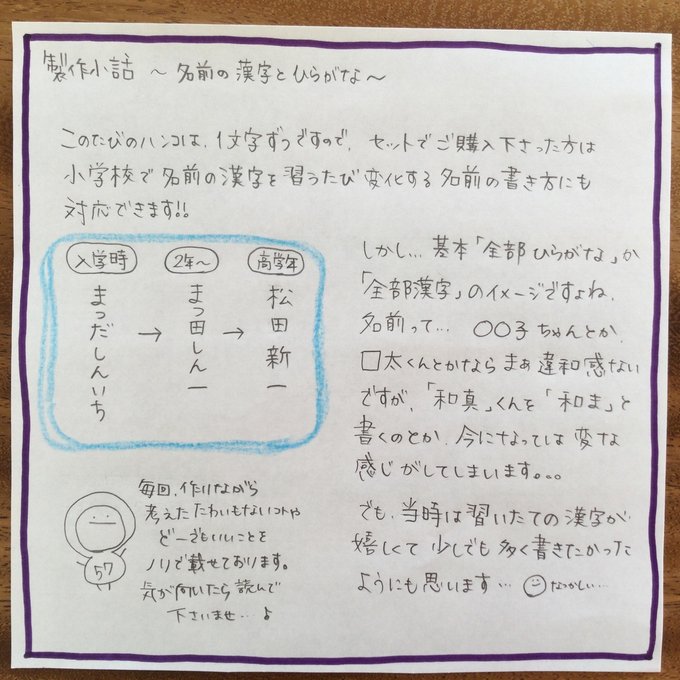 製作小話 〜名前の漢字とひらがな〜
このたびのハンコは、1文字ずつですので、セットでご購入下さった方は
小学校で名前の漢字を習うたび変化する名前の書き方にも
対応できます!!
入学時
まつだしんいち
→
2年〜
まつ田しん一
→
高学年
松田新一
しかし… 基本「全部ひらがな」か
「全部漢字」のイメージですよね。
名前って… 〇〇子ちゃんとか、
□太くんとかなら まぁ違和感ない
ですが、「和真」くんを「和ま」と
書くのとか、今になっては変な
感じがしてしまいます。。。
でも、当時は習いたての漢字が
嬉しくて少しでも多く書きたかった
ようにも思います… なつかしい…
毎回、作りながら
考えたたわいもないコトや
どーでもいいことを
ノリで載せております。
気が向いたら読んで
下さいませ…♪
57